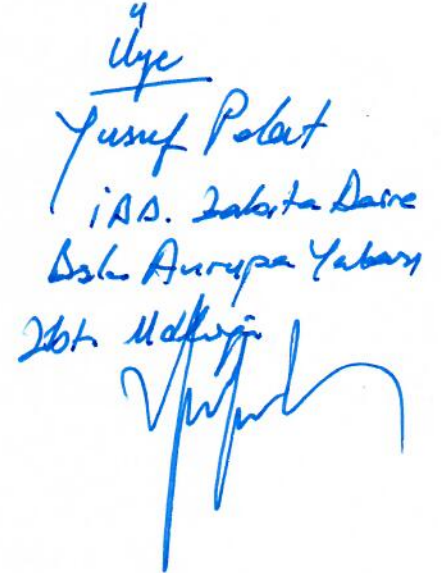 Üye
Yusuf Polat
İBB. Zabıta Daire
Bşk. Avrupa Yakası
Zbt. Müdürlüğü